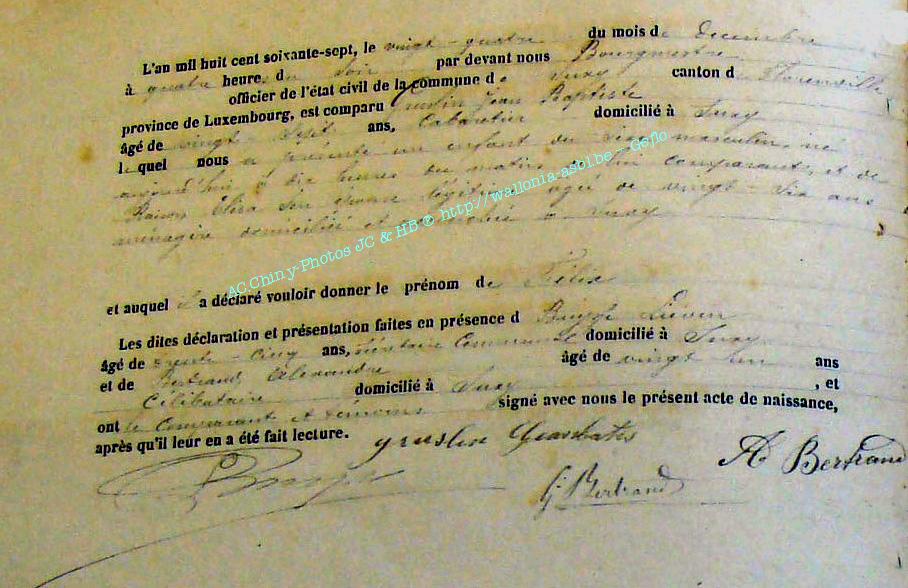 L'an mil huit cent soixante-sept, le vingt-quatre du mois de Decembre
à quatre heure du soir par devant nous Bourgmestre
officier de l'état civil de la commune de Suxy canton de Florenville
province de Luxembourg, est comparu Jean Baptiste
âgé de vingt-sept ans, Cabaretier domicilié à Suxy
lequel nous a présenté un enfant du sexe masculin, né
aujourd'hui à dix heures du matin, de lui comparant, et de
Eliza son épouse légitime, agée de vingt-six ans
ménagère domiciliée et à Suxy
AC.Chiny-Photos JC & HB ® http://wallonia-asbl.be - Geflo
et auquel il a déclaré vouloir donner le prénom de Felix
Les dites déclaration et présentation faites en présence d
âgé de trente-cinq ans, Secrétaire Communal domicilié à Suxy
et de Bertrand Alexandre âgé de vingt un ans
Célibataire domicilié à Suxy, et
ont le Comparant et témoins signé avec nous le présent acte de naissance,
après qu'il leur en a été fait lecture.
A Bertrand
G. Bertrand